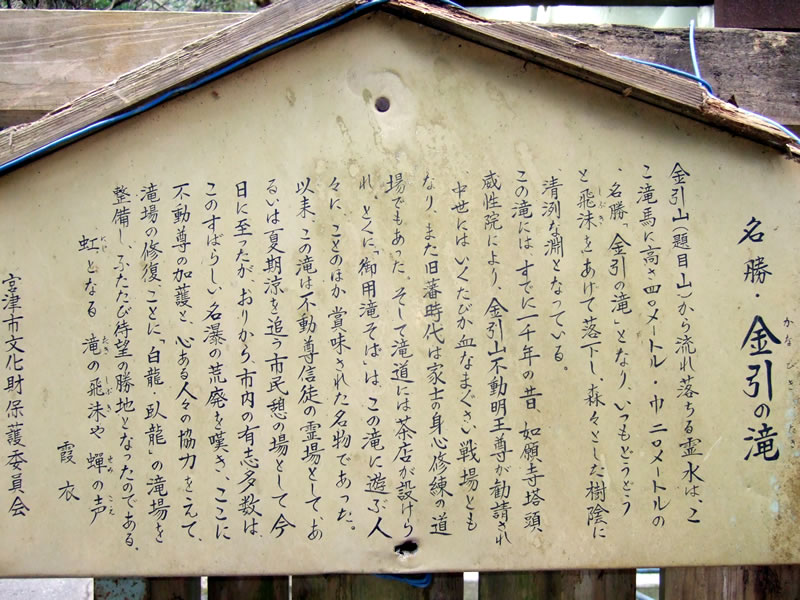 名勝・金引の滝
かなびきのたき
金引山(題目山)から流れ落ちる霊水は、こ
こ滝馬に高さ四〇メートル・巾二〇メートルの
、名勝「金引の滝」となり、いつもどうどう
と飛沫をあげて落下し、森々とした樹陰に
しぶき
清冽な淵となっている。
この滝には、すでに一千年の昔、如願寺塔頭
威性院により、金引山不動明王尊が勧請され
中世にはいくたびか血なまぐさい戦場とも
なり、また旧藩時代は家士の身心修練の道
場でもあった。そして滝道には茶店が設けら
れ、とくに「御用滝そば」は、この滝に遊ぶ人
々に、ことのほか賞味された名物であった。
以来、この滝は不動尊信徒の霊場としてあ
るいは夏期涼を追う市民憩の場として今
日に至ったが、おりから、市内の有志多数は、
このすばらしい名瀑の荒廃を嘆き、ここに
不動尊の加護と、心ある人々の協力をえて、
滝場の修復、ことに「白龍・臥龍」の滝場を
整備し、ふたたび待望の勝地となったのである。
虹となる 滝の飛沫や 蝉の声
にじ たき しぶき せみ こえ
霞衣
宮津市文化財保護委員会